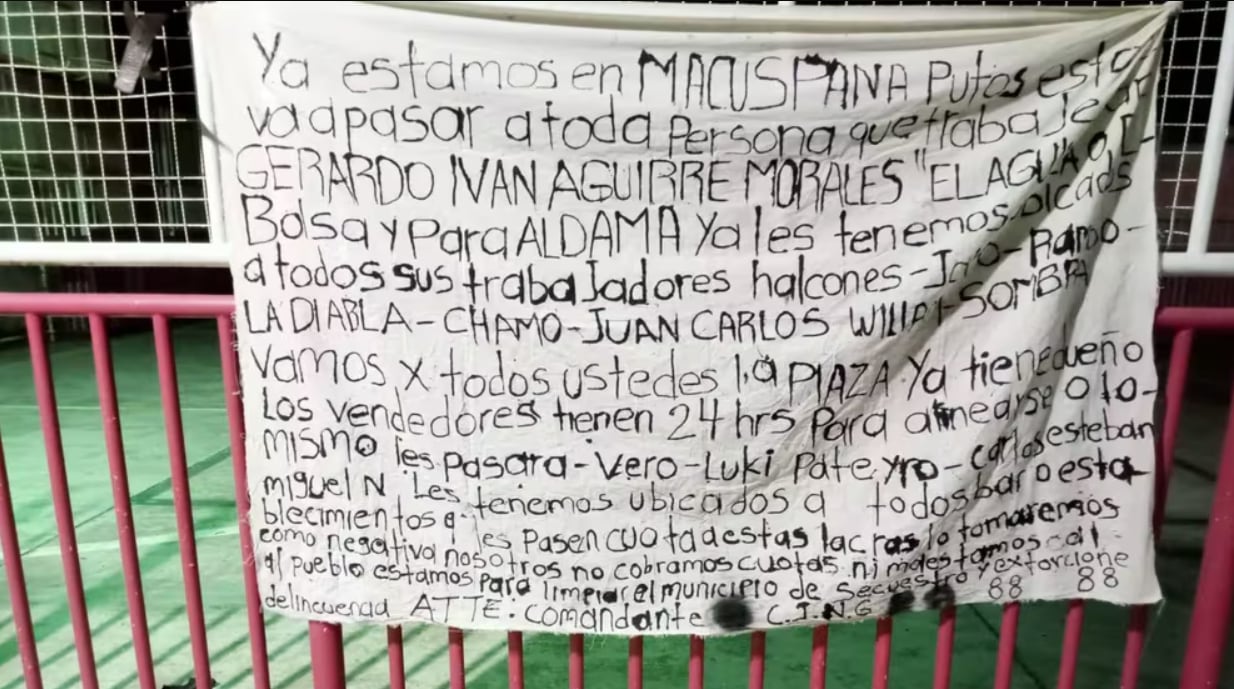 Ya estamos en MACUSPANA Putos esto
va a pasar a toda Persona que trabaje
GERARDO IVAN AGUIRRE MORALES "EL AGUILA O
Bolsa y Para ALDAMA Ya les tenemos
a todos sus trabaJadores halcones -
LA DIABLA - CHAMO - JUAN CARLOS - SOMBRA
Vamos x todos ustedes la PlAZA Ya tiene dueño
Los vendedores tienen 24 hrs Para alinearse o lo -
mismo les Pasara - Vero - Luki Pateyro - carlos esteban
miguel N Les tenemos ubicados a todos bar o esta
blecimientos q. les Pasen cuota a estas lacras lo tomaremos
como negativa nosotros no cobramos cuotas ni molestamos
al Pueblo estamos Para limpiar el municipio de secuestro y extorcione
delincuencia ATTE: Comandante C.J.N.G 88 88